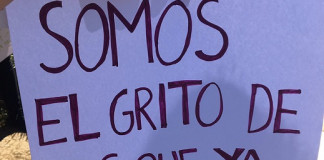 SOMOS
EL GRITO DE
QUE YA